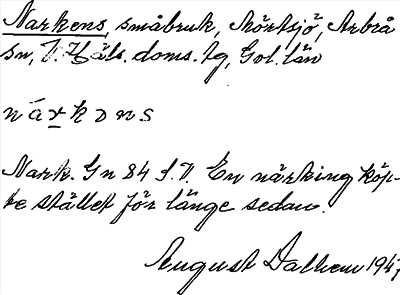 Narkens, småbruk, Mörtsjö, Arbrå
sn, V. Häls. doms. tg, Gvl. län
närkɔns
Nark. Gn 84 S.V. En närking köp-
te stället för länge sedan.
August Dalhem 1947